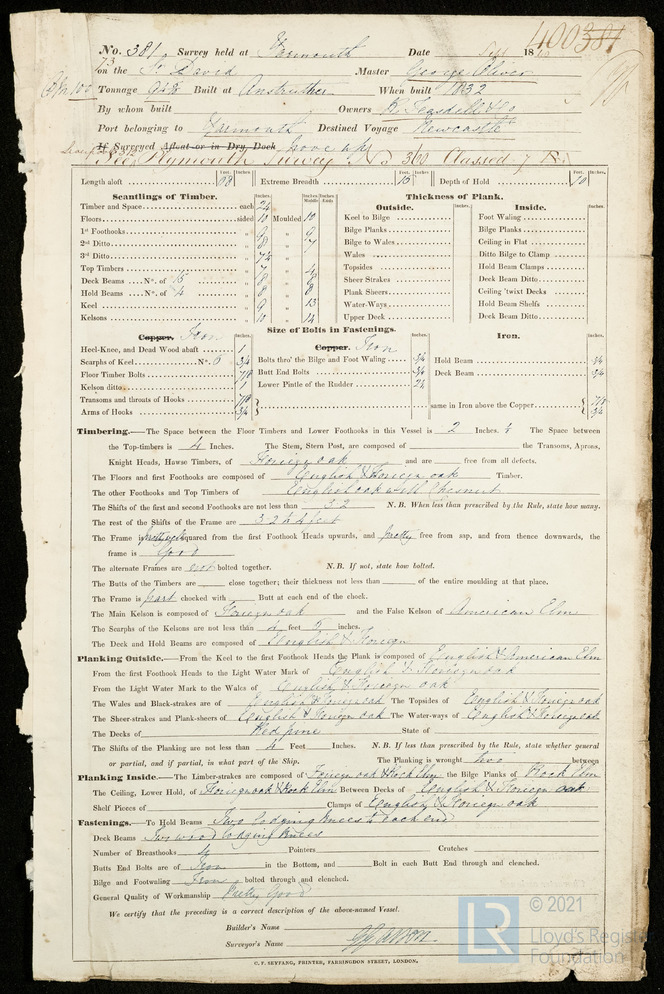 No. 381 Survey held at Yarmouth Date Sept 18
400381
on the St. David Master George Oliver
Tonnage Built at Anstruther When built 1832
By whom built Owners R. Teasdell & Co
Port belonging to Yarmouth Destined Voyage Newcastle
If Surveyed Afloat or in Dry Dock hove up
See Plymouth Survey No. 360 Classed
Length aloft Feet. Inches. Extreme Breadth Feet. Inches. Depth of Hold Feet. Inches. 10
Scantlings of Timber. Thickness of Plank.
Timber and Space each 24 Outside. Inside.
Floors sided 10 Moulded 10 Keel to Bilge Foot Waling
1st Foothooks 9 " 9 Bilge Planks Bilge Planks
2nd Ditto 8 " 7 Bilge to Wales Ceiling in Flat
3rd Ditto 7½ " Wales Ditto Bilge to Clamp
Top Timbers 7 " Topsides Hold Beam Clamps
Deck Beams No. of 15 8 " 8 Sheer Strakes Deck Beam Ditto
Hold Beams No. of 4 8 " 8 Plank Sheers Ceiling 'twixt Decks
Keel 9 " 13 Water-Ways Hold Beam Shelfs
Kelsons 10 " 12 Upper Deck Deck Beam Ditto
Size of Bolts in Fastenings.
Copper. Iron Copper. Iron Iron.
Heel-Knee, and Dead Wood abaft 1 Bolts thro' the Bilge and Foot Waling 3/4 Hold Beam 3/4
Scarphs of Keel No. 6 3/4 Butt End Bolts 3/4 Deck Beam 3/4
Floor Timber Bolts 7/8 Lower Pintle of the Rudder 2½
Kelson ditto 1
Transoms and throats of Hooks 7/8 same in Iron above the Copper 7/8
Arms of Hooks 3/4 3/4
Timbering.—The Space between the Floor Timbers and Lower Foothooks in this Vessel is 2 Inches. & The Space between
the Top-timbers is 4 Inches. The Stem, Stern Post, are composed of the Transoms, Aprons,
Knight Heads, Hawse Timbers, of Foreign oak and are free from all defects.
The Floors and first Foothooks are composed of English & Foreign oak Timber.
The other Foothooks and Top Timbers of English oak with Chesnut
The Shifts of the first and second Foothooks are not less than 3.2 N.B. When less than prescribed by the Rule, state how many.
The rest of the Shifts of the Frame are 3.2 to 4 feet
The Frame is pretty well squared from the first Foothook Heads upwards, and pretty free from sap, and from thence downwards, the
frame is Good
The alternate Frames are not bolted together. N.B. If not, state how bolted.
The Butts of the Timbers are close together; their thickness not less than of the entire moulding at that place.
The Frame is part chocked with Butt at each end of the chock.
The Main Kelson is composed of Foreign oak and the False Kelson of American Elm
The Scarphs of the Kelsons are not less than 4 feet inches.
The Deck and Hold Beams are composed of English & Foreign
Planking Outside.—From the Keel to the first Foothook Heads the Plank is composed of English & American Elm
From the first Foothook Heads to the Light Water Mark of English & Foreign oak
From the Light Water Mark to the Wales of English & Foreign oak
The Wales and Black-strakes are of English & Foreign oak The Topsides of English & Foreign oak
The Sheer-strakes and Plank-sheers of English & Foreign oak The Water-ways of English & Foreign oak
The Decks of Red pine State of
The Shifts of the Planking are not less than 4 Feet Inches. N.B. If less than prescribed by the Rule, state whether general
or partial, and if partial, in what part of the Ship. The Planking is wrought two between
Planking Inside.—The Limber-strakes are composed of Foreign oak & Rock Elm the Bilge Planks of Rock Elm
The Ceiling, Lower Hold, of Foreign oak & Rock Elm Between Decks of English & Foreign oak
Shelf Pieces of Clamps of English & Foreign oak
Fastenings.—To Hold Beams Two lodging knees to each end
Deck Beams Two wood lodging knees
Number of Breasthooks 4 Pointers Crutches
Butts End Bolts are of Iron in the Bottom, and Bolt in each Butt End through and clenched.
Bilge and Footwaling Iron bolted through and clenched.
General Quality of Workmanship Pretty Good
We certify that the preceding is a correct description of the above-named Vessel.
Builder's Name
Surveyor's Name
C. F. SEYFANG, PRINTER, FARRINGDON STREET, LONDON.
LR © 2021
Lloyd's Register
Foundation